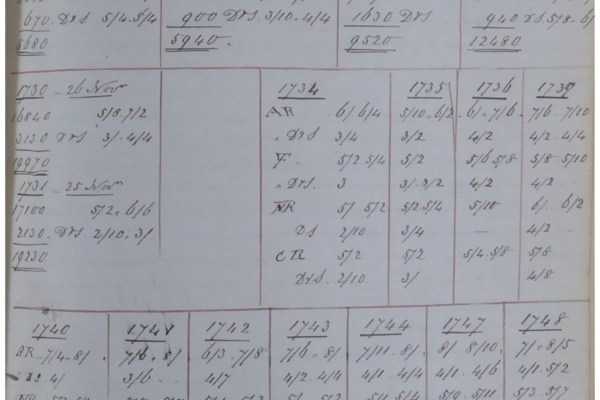 670 Drs 5/4 5/4 900 Drs 3/10 . 4/4 1630 Drs 940 Drs 5/8 . 6/
5680 5940. 9520 12480
1730 - 26 Nov
16840 5/8 . 7/2
3130 Drs 3/ . 4/4
19970
1731 - 25 Nov
17100 5/2 . 6/6
2130 . Drs 2/10 . 3/
19230
1734 1735 1736 1739
AR 6/ 6/4 5/10 . 6/2 6/ . 7/6 . 7/6 . 7/10
" Drs 3/4 3/2 4/2 4/2 . 4/4
5/2 5/4 5/2 5/6 5/8 5/8 . 5/10
" Drs. 3 3/ . 3/2 4/2 4/2 -
NR 5/ 5/2 5/2 5/4 5/10 6/ . 6/2
DS 2/10 3/4 - 4/2 -
CR 5/2 5/2 5/4 . 5/8 5/8
Drs . 2/10 3/ - 4/8
1740 1741 1742 1743 1744 1747 1748
AR - 7/4 . 8/ . 7/6 . 8/ 6/3 . 7/8 7/6 . 8/ 7/11 . 8/ . 8/ 8/10 . 7/ . 8/5
4/ 3/6 - 4/7 4/2 . 4/4 4/1 . 4/4 4/1 . 4/6 4/1 . 5/2
5/9 . 5/11 5/3 . 5/7